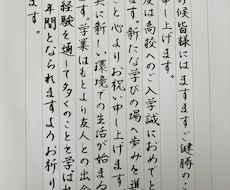 の候皆様にはますますご健勝のこ
申し上げます。
度は高校へのご入学誠におめでと
ます。新たな学びの場へ歩みを進
こと心よりお祝い申し上げます
共に新しい環境での生活が始ま
す。学業はもとより友人との出会
経験を通して多くのことを学ばれ
年間となられますようお祈り
ます。